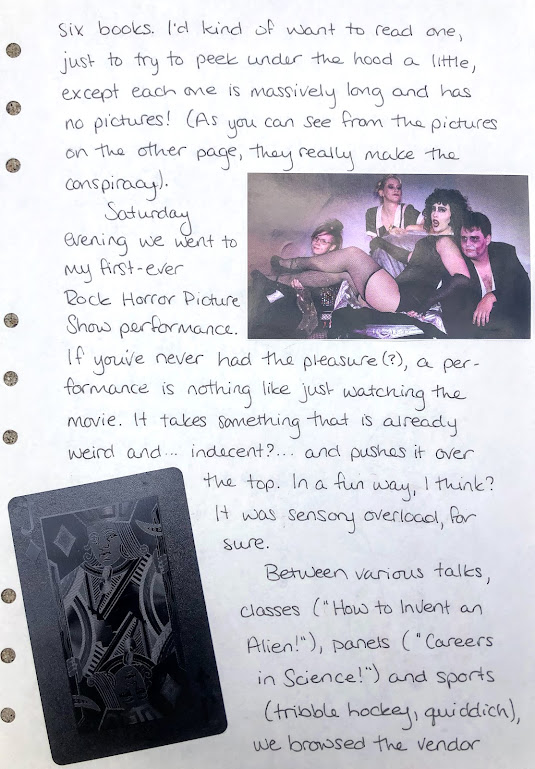 six books. I'd kind of want to read one,
just to try to peek under the hood a little,
except each one is massively long and has
no pictures! (As you can see from the pictures
on the other page, they really make the
conspiracy).
Saturday
evening we went to
my first-ever
Rock Horror Picture
Show performance.
If you've never had the pleasure(?), a per-
formance is nothing like just watching the
movie. It takes something that is already
weird and... indecent?... and pushes it over
the top. In a fun way, I think?
It was sensory overload, for
sure.
Between various talks,
classes ("How to Invent an
Alien!"), panels ("Careers
in Science!") and sports
(tribble hockey, quiddich),
we browsed the vendor